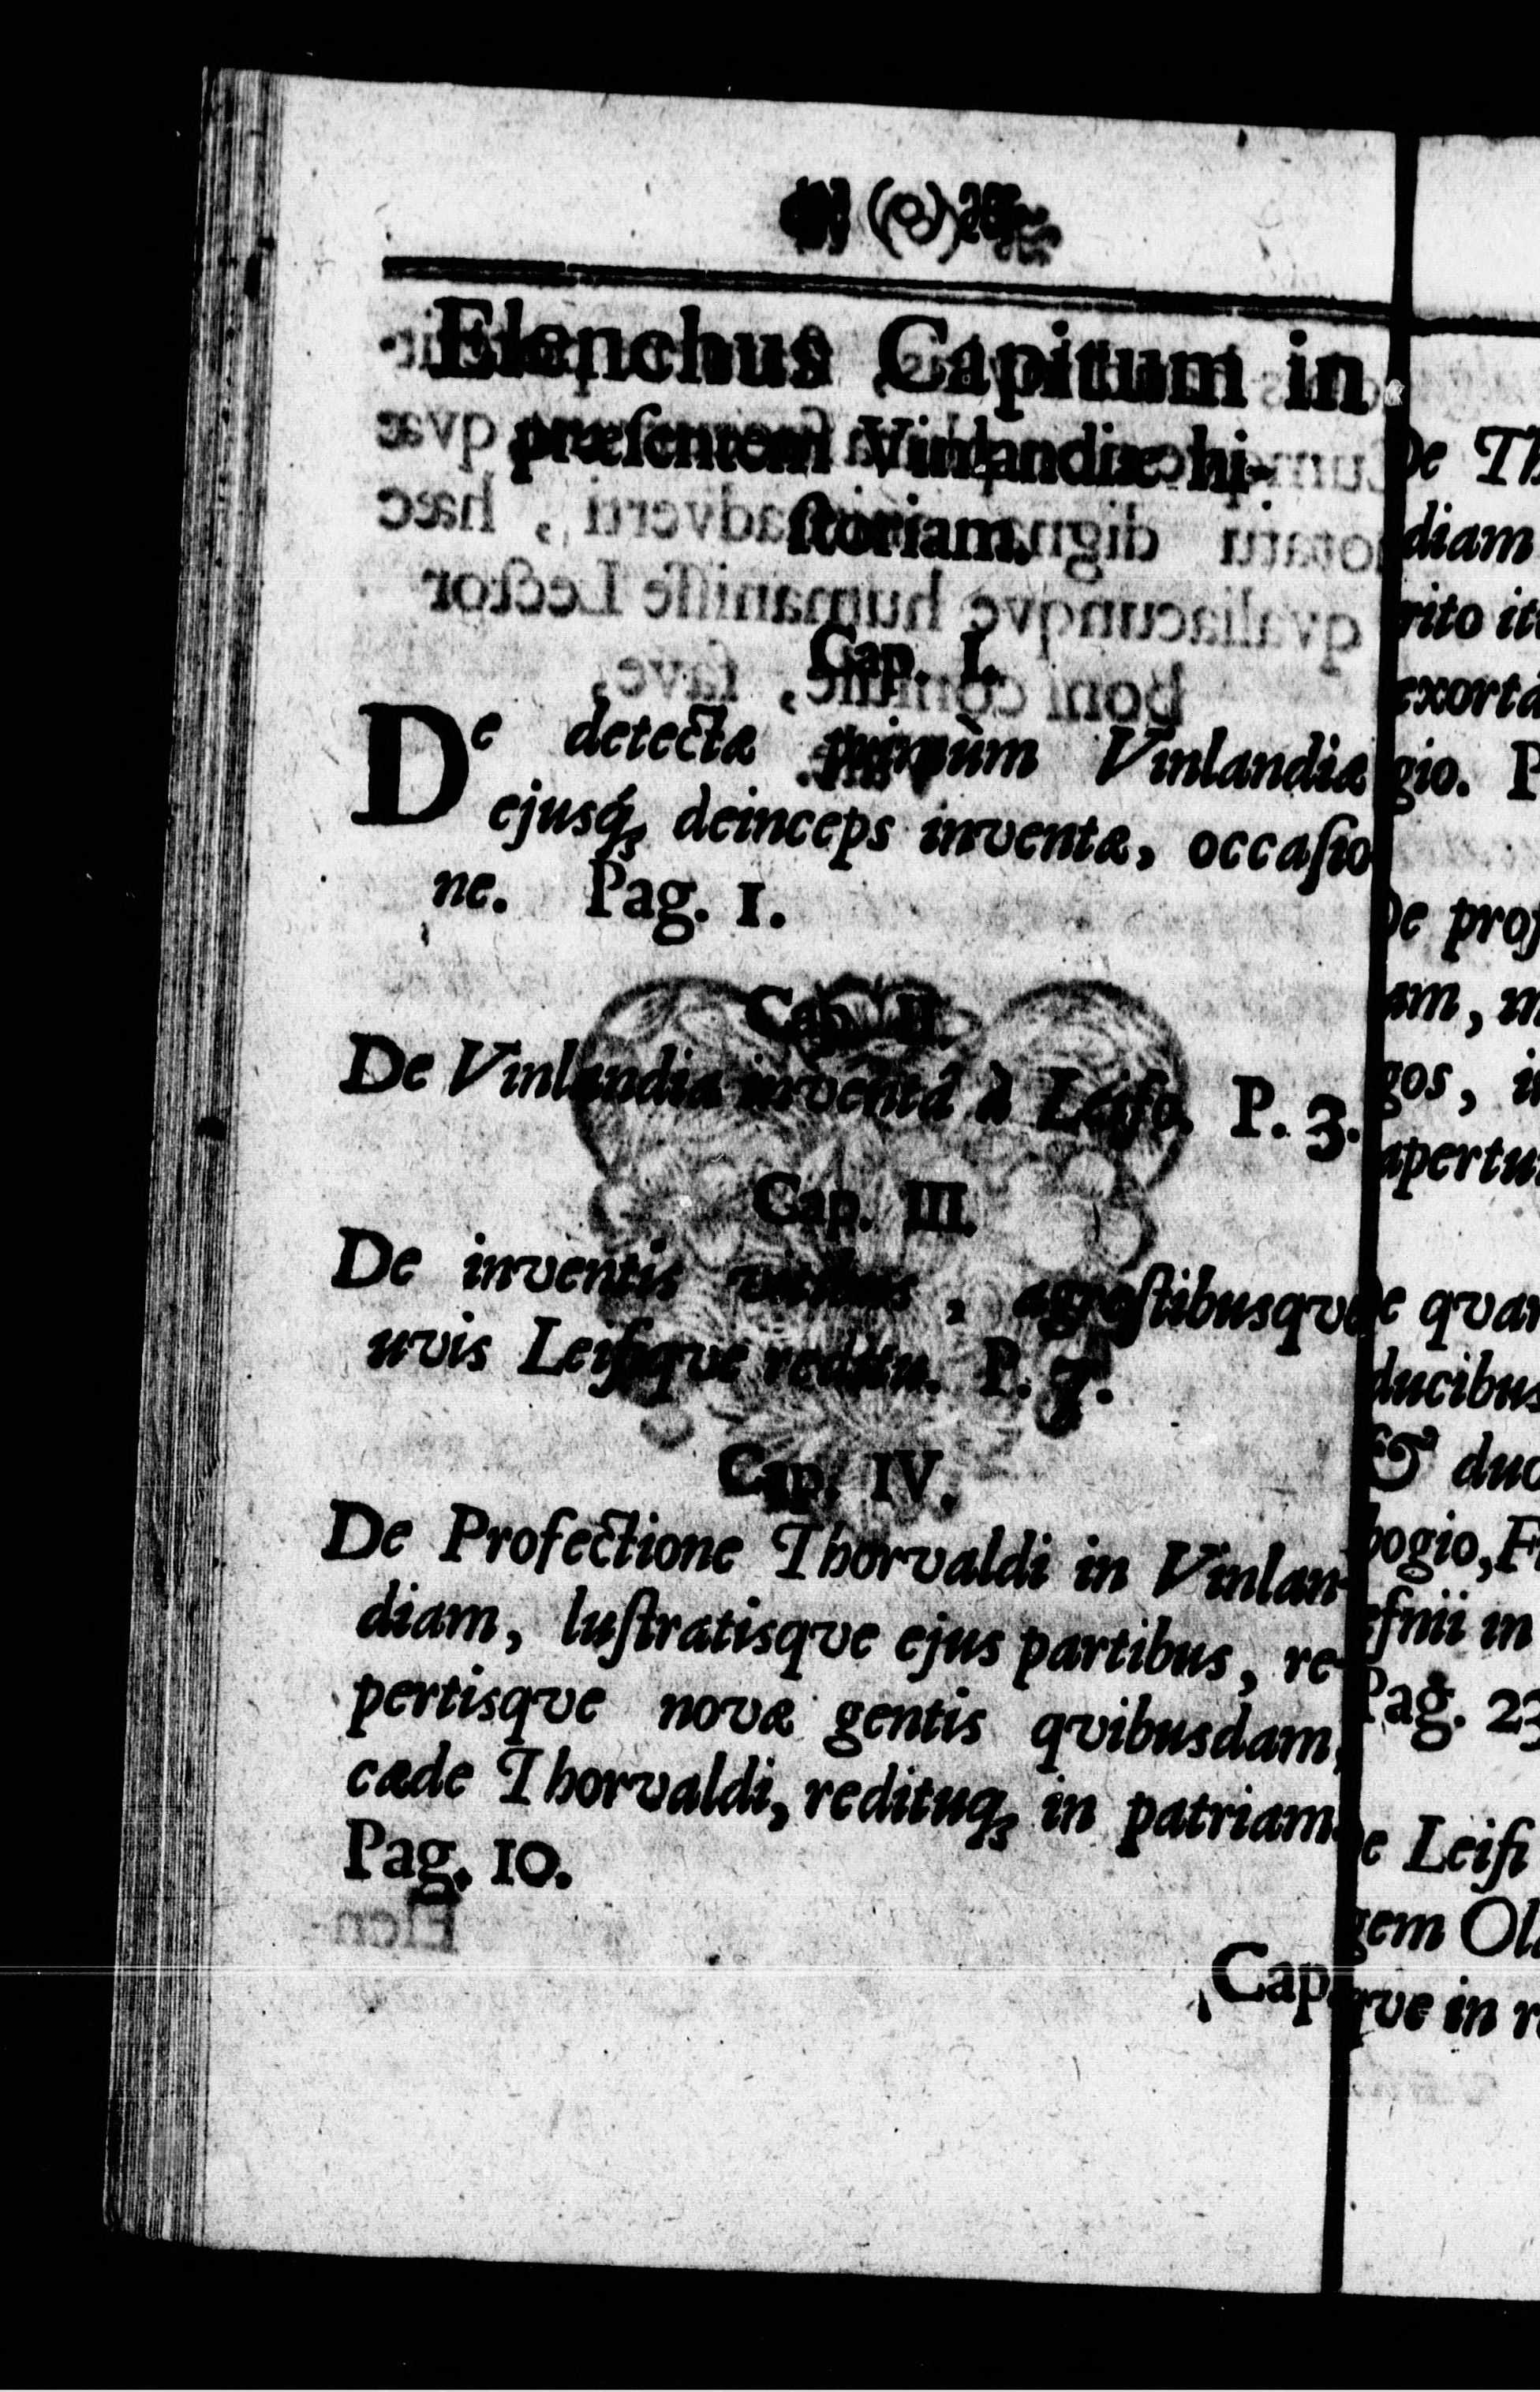 Elenchus Capitum in
præſentem Vinlandiæ hi-
ſtoriam.
Cap. I.
De detectæ primùm Vinlandiæ
ejusq́; deinceps inventæ, occaſio
ne. Pag. 1.
Cap. II.
De Vinlandia inventâ à Leifo. P. 3.
Cap. III.
De inventis vitibus, agreſtibusqve
uvis Leifiqve reditu. P. 7.
Cap. IV.
De Profectione Thorvaldi in Vinlan-
diam, luſtratisqve ejus partibus, re-
pertisqve novæ gentis qvibusdam,
cæde Thorvaldi, redituq; in patriam.
Pag. 10.
Cap.
De Th
diam
rito it
exorta
gio. P
De prof
am, in
gos, i
apertu
De qvar
ducibus
& duo
bogio, Fr
efnii in
Pag. 23
De Leifi
gem Ol
qve in r